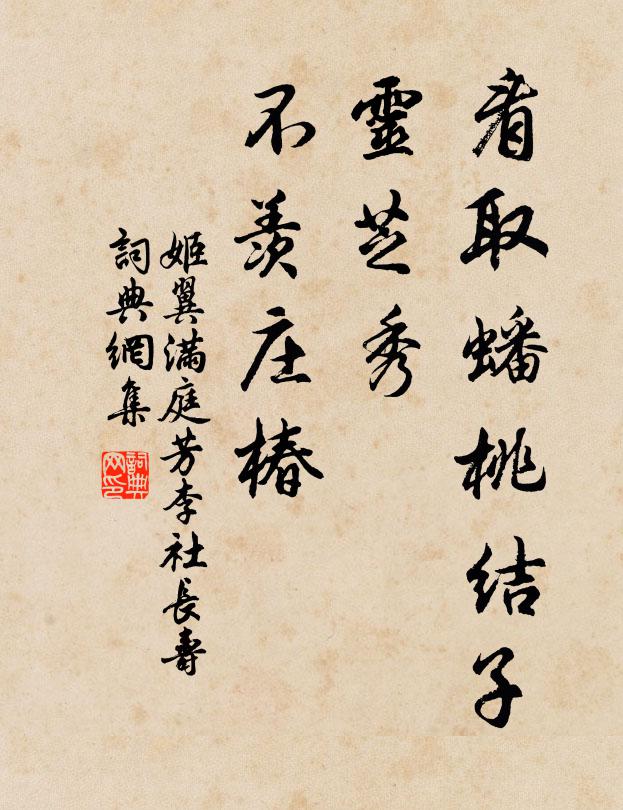 看取蟠桃結子
靈芝秀
不羨庄椿
姬翼滿庭芳李社長壽
詞典網集
詞典網印